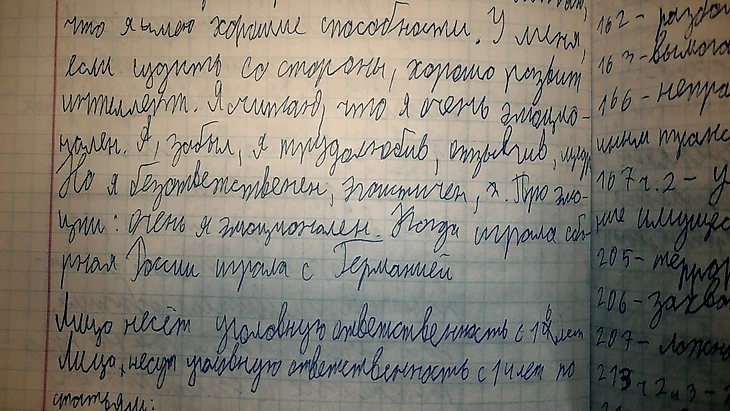 что я имею хорошие способности. У меня,
если судить со стороны, хорошо развит
интеллект. Я считаю, что я очень эмоцио-
нален. Я, забыл, я трудолюбив, отзывчив, щедр.
Но я безответственен, эгоистичен, х. Про эмо-
ции: очень я эмоционален. Когда играла сбо-
рная России играла с Германией
Лицо несёт уголовную ответственность с 16 лет
Лицо, несут уголовную ответственность с 14 лет по
статьям:
162 - разбой
163 - вымога
166 - непра
иным транс
167 ч. 2 - у
ние имущес
205 - террор
206 - захва
207 - ложно
213 ч 2 и 3 -